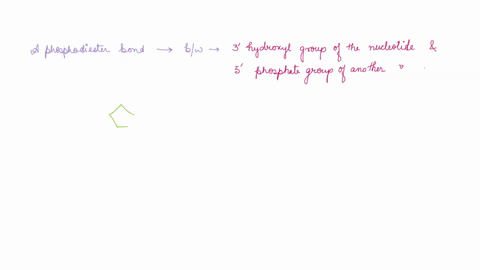 A phosphodiester bond → b/w → 3' hydroxyl group of the nucleotide &
5' phosphate group of another "